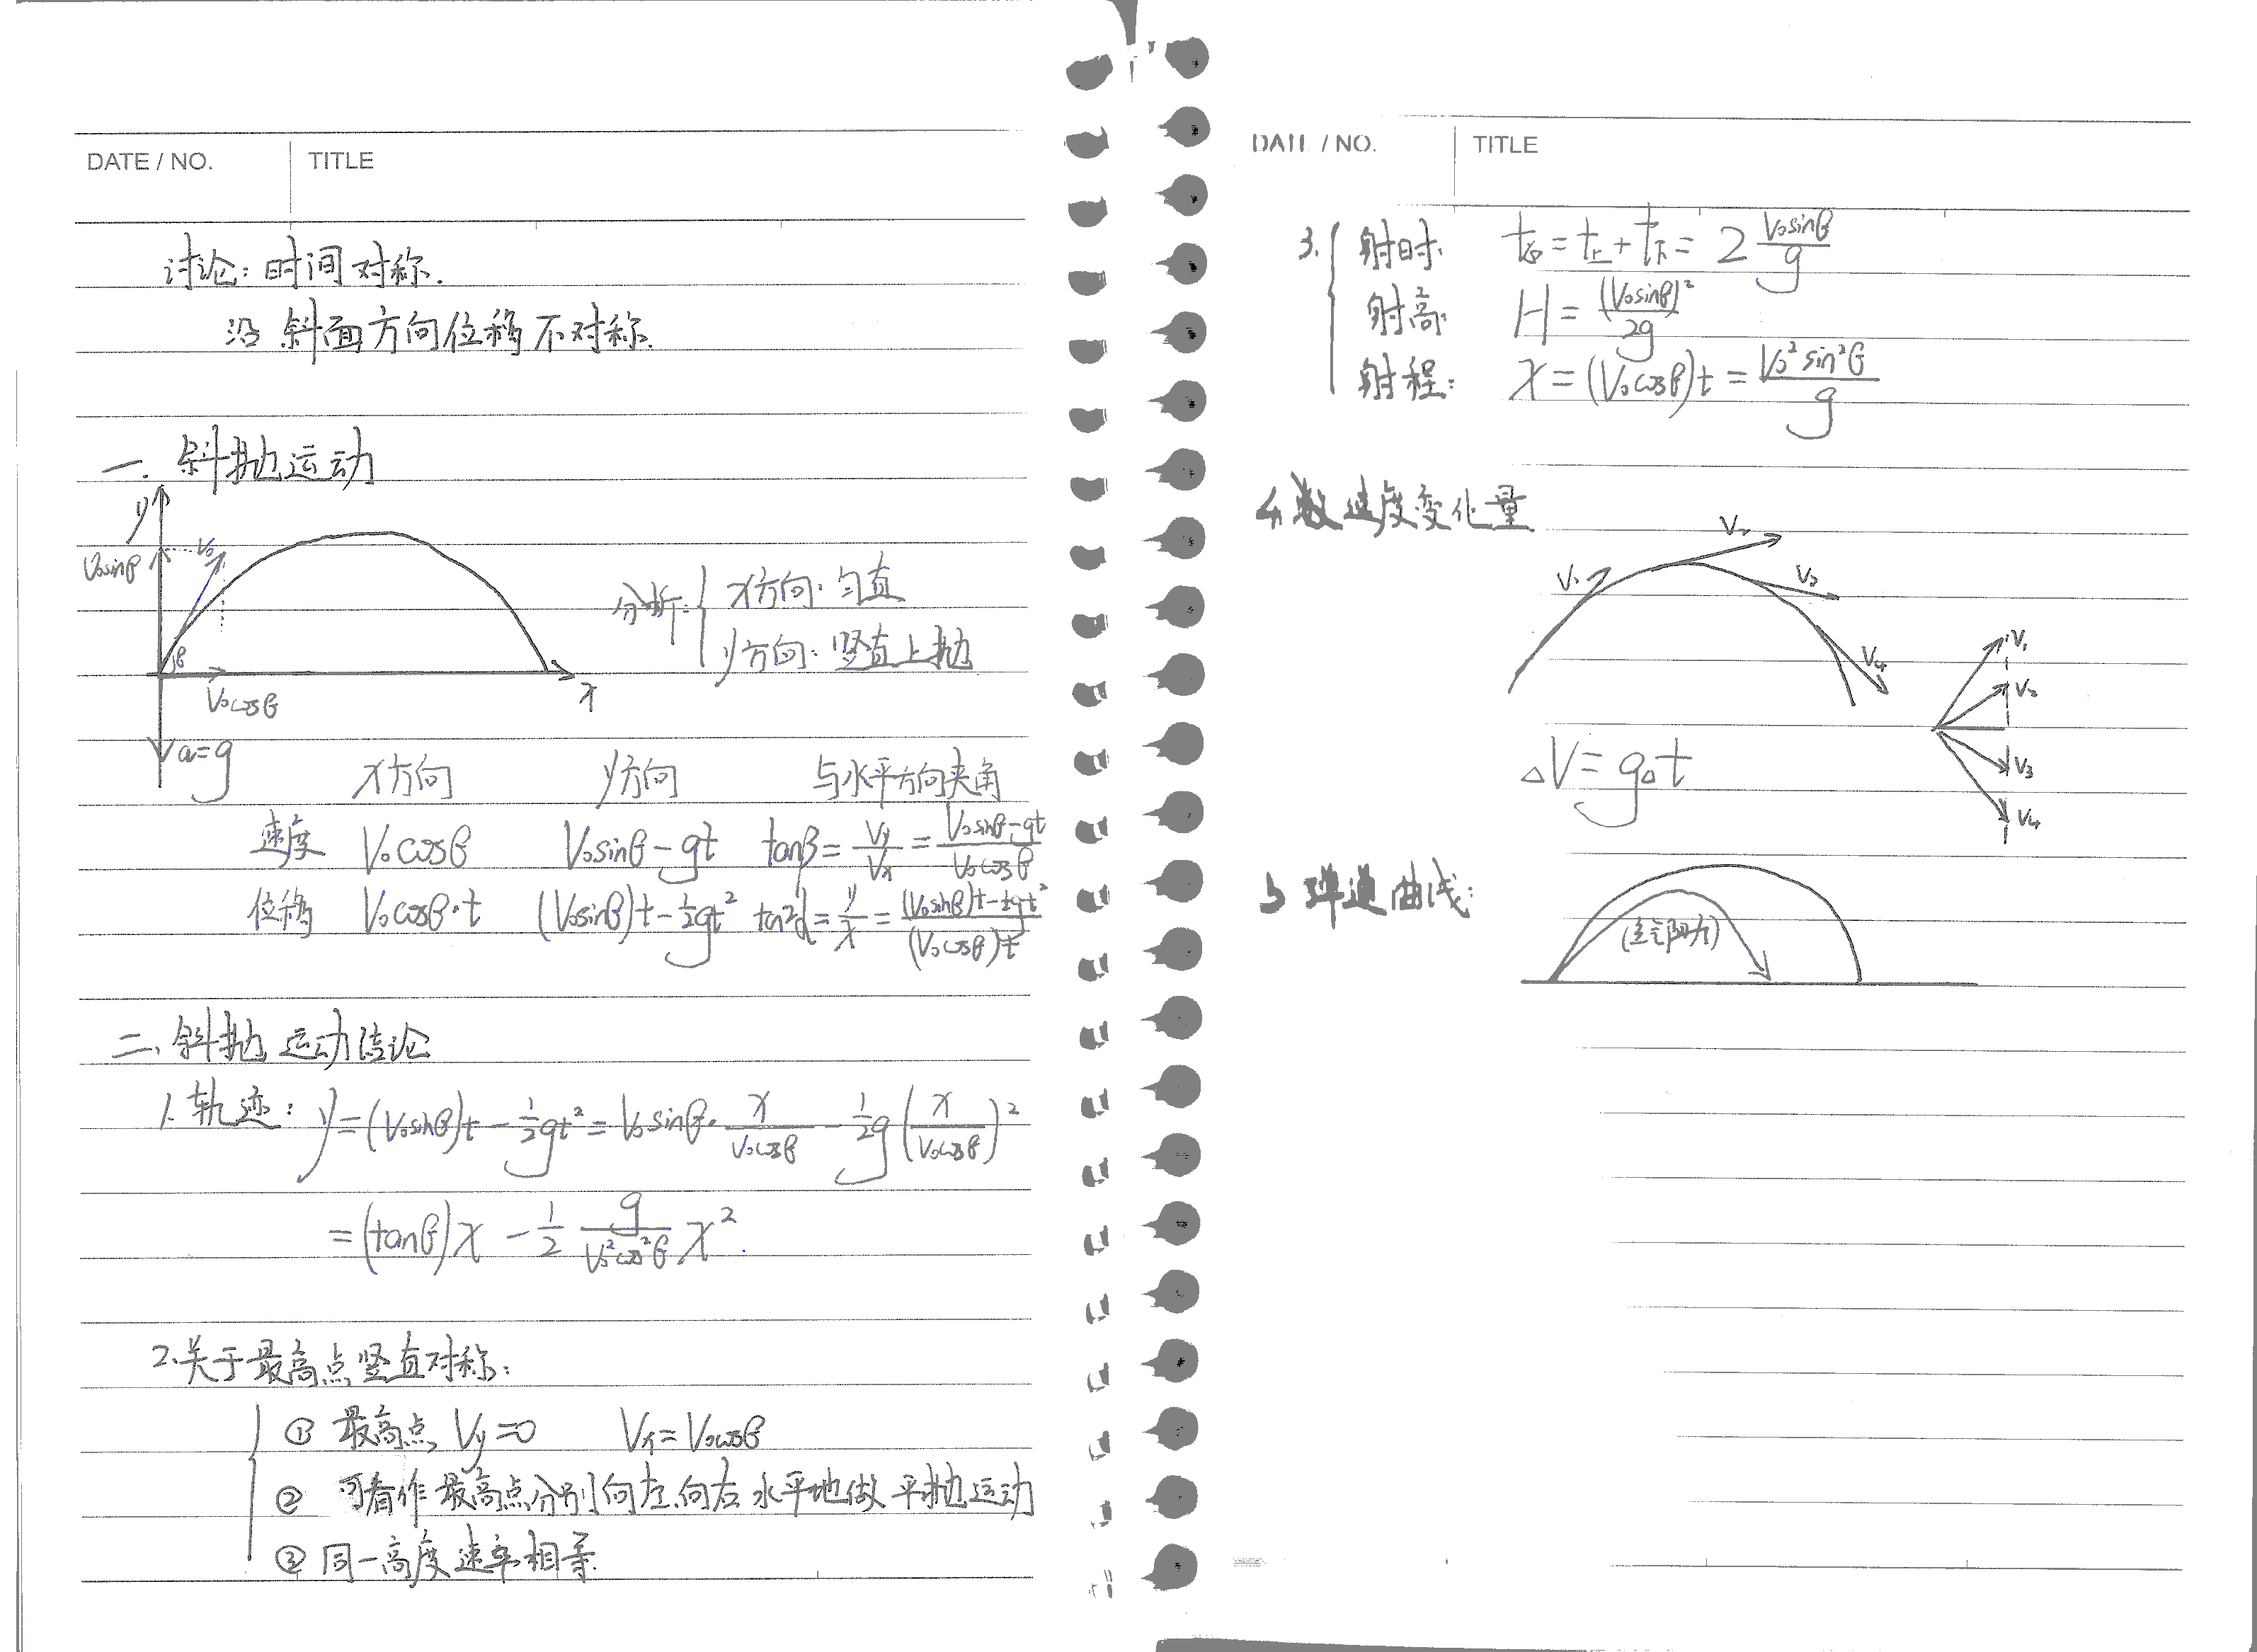 DATE / NO. TITLE
讨论: 时间对称.
沿斜面方向位移不对称.
一. 斜抛运动
y
V₀sinθ V₀
分析: { x方向: 匀直
y方向: 竖直上抛
θ
V₀cosθ x
a=g
x方向 y方向 与水平方向夹角
速度 V₀cosθ V₀sinθ-gt tanβ = Vy/Vx = (V₀sinθ-gt)/(V₀cosθ)
位移 V₀cosθ·t (V₀sinθ)t-½gt² = y/x = ((V₀sinθ)t-½gt²)/((V₀cosθ)t)
二. 斜抛运动结论
1. 轨迹: y=(V₀sinθ)t-½gt²=V₀sinθ·x/(V₀cosθ)-½g(x/(V₀cosθ))²
=(tanθ)x-½ g/(V₀²cos²θ) x².
2.关于最高点竖直对称:
① 最高点 Vy=0 Vx=V₀cosθ
② 可看作最高点分别向左.向右水平地做平抛运动
③ 同一高度速率相等.
DATE / NO. TITLE
3. { 射时: t总=t上+t下= 2 V₀sinθ/g
射高: H= (V₀sinθ)²/2g
射程: x=(V₀cosθ)t= V₀²sin²θ/g
4. 速度变化量
V₁ V₂ V₃ V₄
V₁
V₂
V₃
V₄
△V=g△t
5 弹道曲线:
(空气阻力)